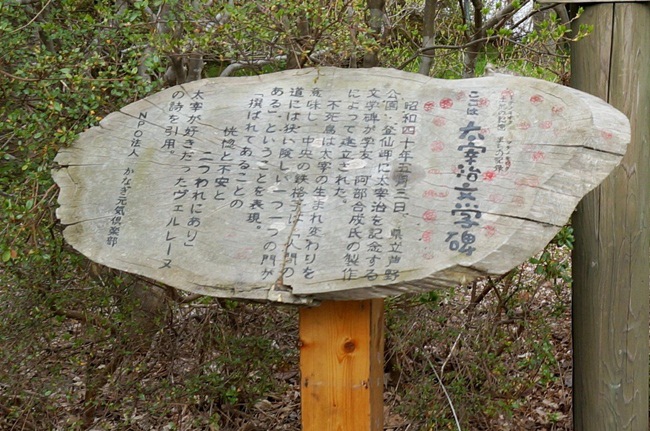 これは 太宰治文学碑
昭和四十年五月三日、県立芦野
公園・登仙岬に太宰治を記念する
文学碑が学友、阿部合成氏の製作
によって建立された。
不死鳥は太宰の生まれ変わりを
意味し、中央の鉄格子は「人間の
道には狭い険しい一つ一つの門が
ある」ということを表現。
「撰ばれてあることの
恍惚と不安と
二つわれにあり」
太宰が好きだったヴェルレーヌ
の詩を引用。
NPO法人 かなぎ元気倶楽部